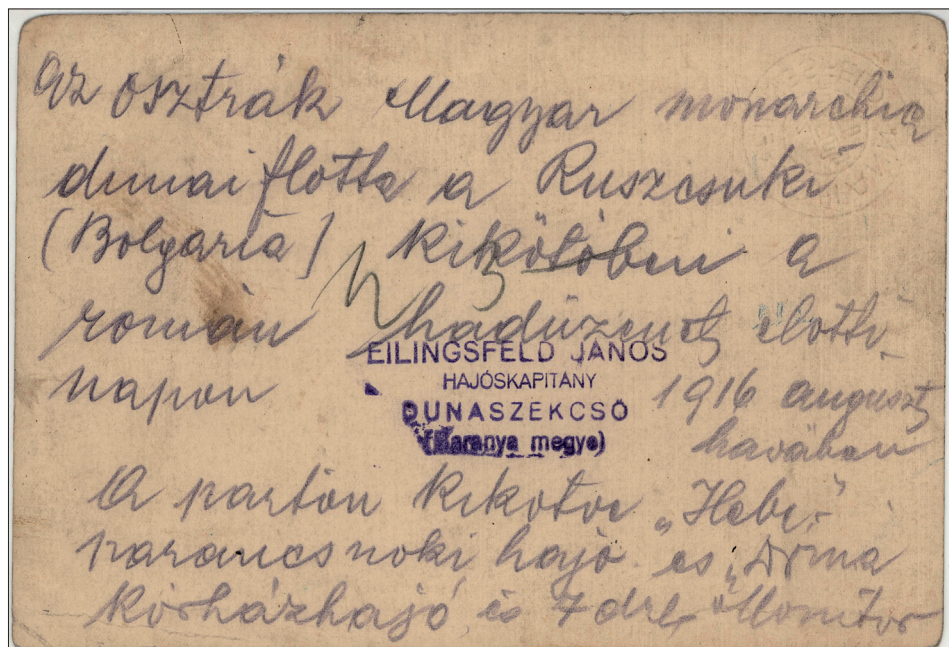 Az osztrák Magyar monarchia
dunai flotta a Ruszcsuki
(Bolgaria) kikötőben a
román hadüzenet előtti
napon 1916 auguszt
havában
EILINGSFELD JÁNOS
HAJÓSKAPITÁNY
DUNASZEKCSŐ
(Baranya megye)
A parton kikotve „Hebe"
parancsnoki hajó es „Drina
kórházhajó és 7 drb Monitor